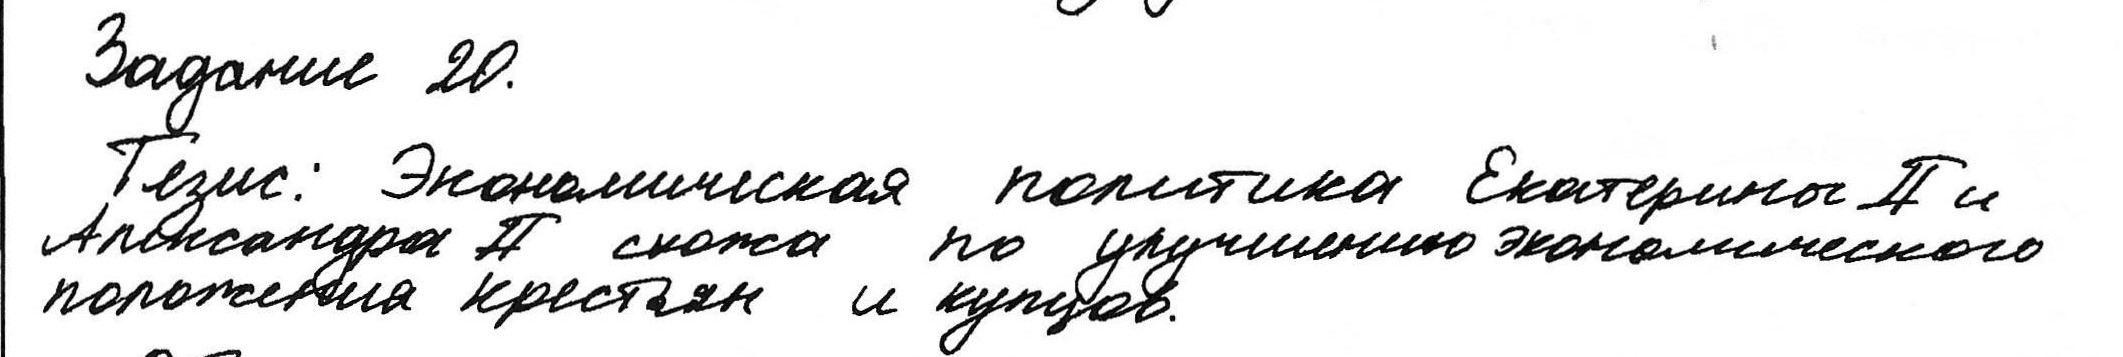 Задание 20.
Тезис: Экономическая политика Екатерины II и
Александра II схожа по улучшению экономического
положения крестьян и купцов.